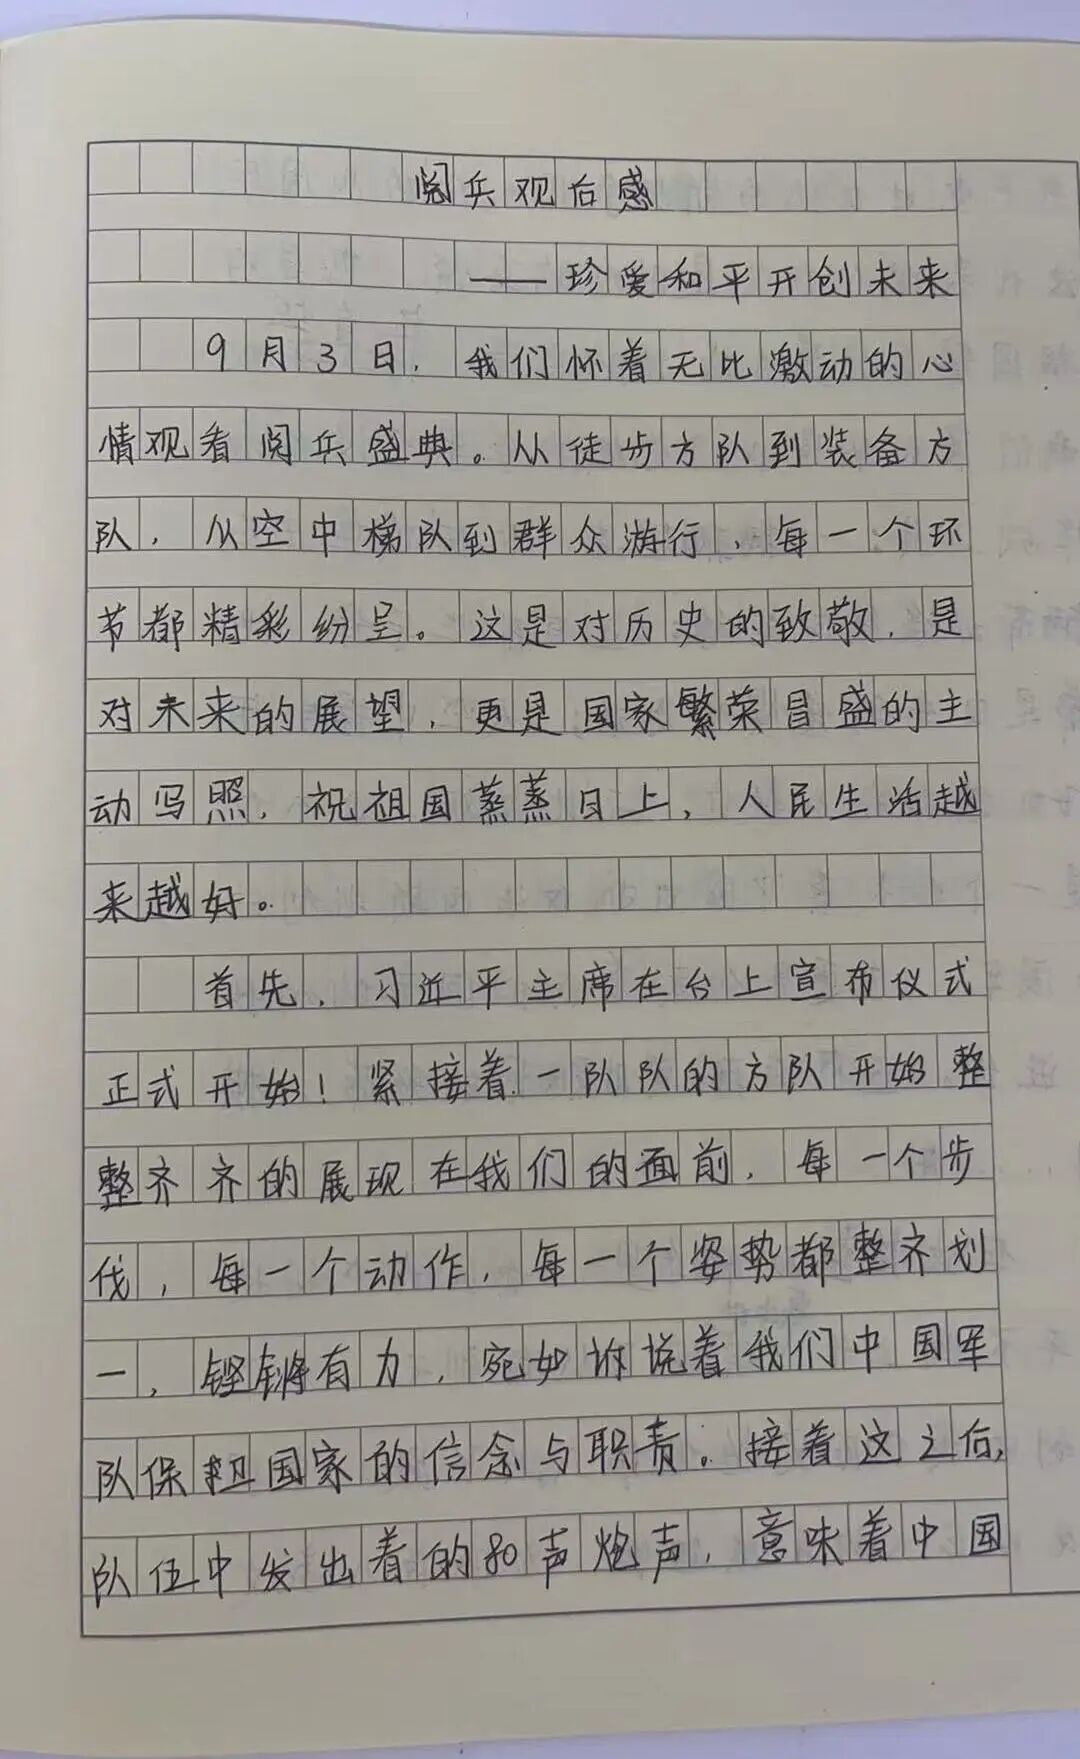 阅兵观后感
——珍爱和平开创未来
9月3日，我们怀着无比激动的心
情观看阅兵盛典。从徒步方队到装备方
队，从空中梯队到群众游行，每一个环
节都精彩纷呈。这是对历史的致敬，是
对未来的展望，更是国家繁荣昌盛的主
动写照，祝祖国蒸蒸日上，人民生活越
来越好。
首先，习近平主席在台上宣布仪式
正式开始！紧接着一队队的方队开始整
整齐齐的展现在我们的面前，每一个步
伐，每一个动作，每一个姿势都整齐划
一，铿锵有力，宛如诉说着我们中国军
队保国家的信念与职责。接着这之后，
队伍中发出着的80声炮声，意味着中国